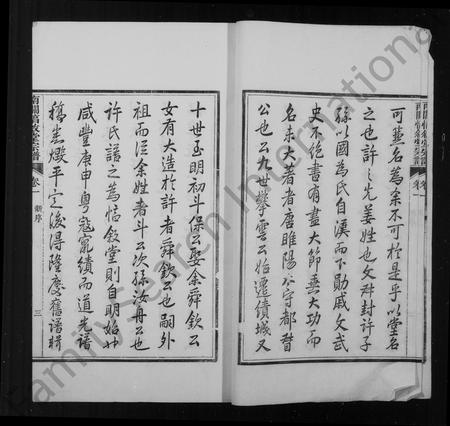 可無名為余不可於是乎以堂名
之也許之先姜姓也文叔封許子
孫以國為氏自漢而下勛戚文武
史不絕書有盡大節垂大功而
名未大著者唐睢陽不守都督
公也公九世攀雲公始遷績城又
南關惇敘堂宗譜 卷一 新序 三
十世至明初斗保公娶余舜欽公
女有大造於許者舜欽公也嗣外
祖而從余姓者斗公次孫汝舟公也
許氏譜之為惇敘堂則自明始也
咸豐庚申粵寇竄績而道光譜
稿悉燬平定後得隆慶舊譜輯
FamilySearch International